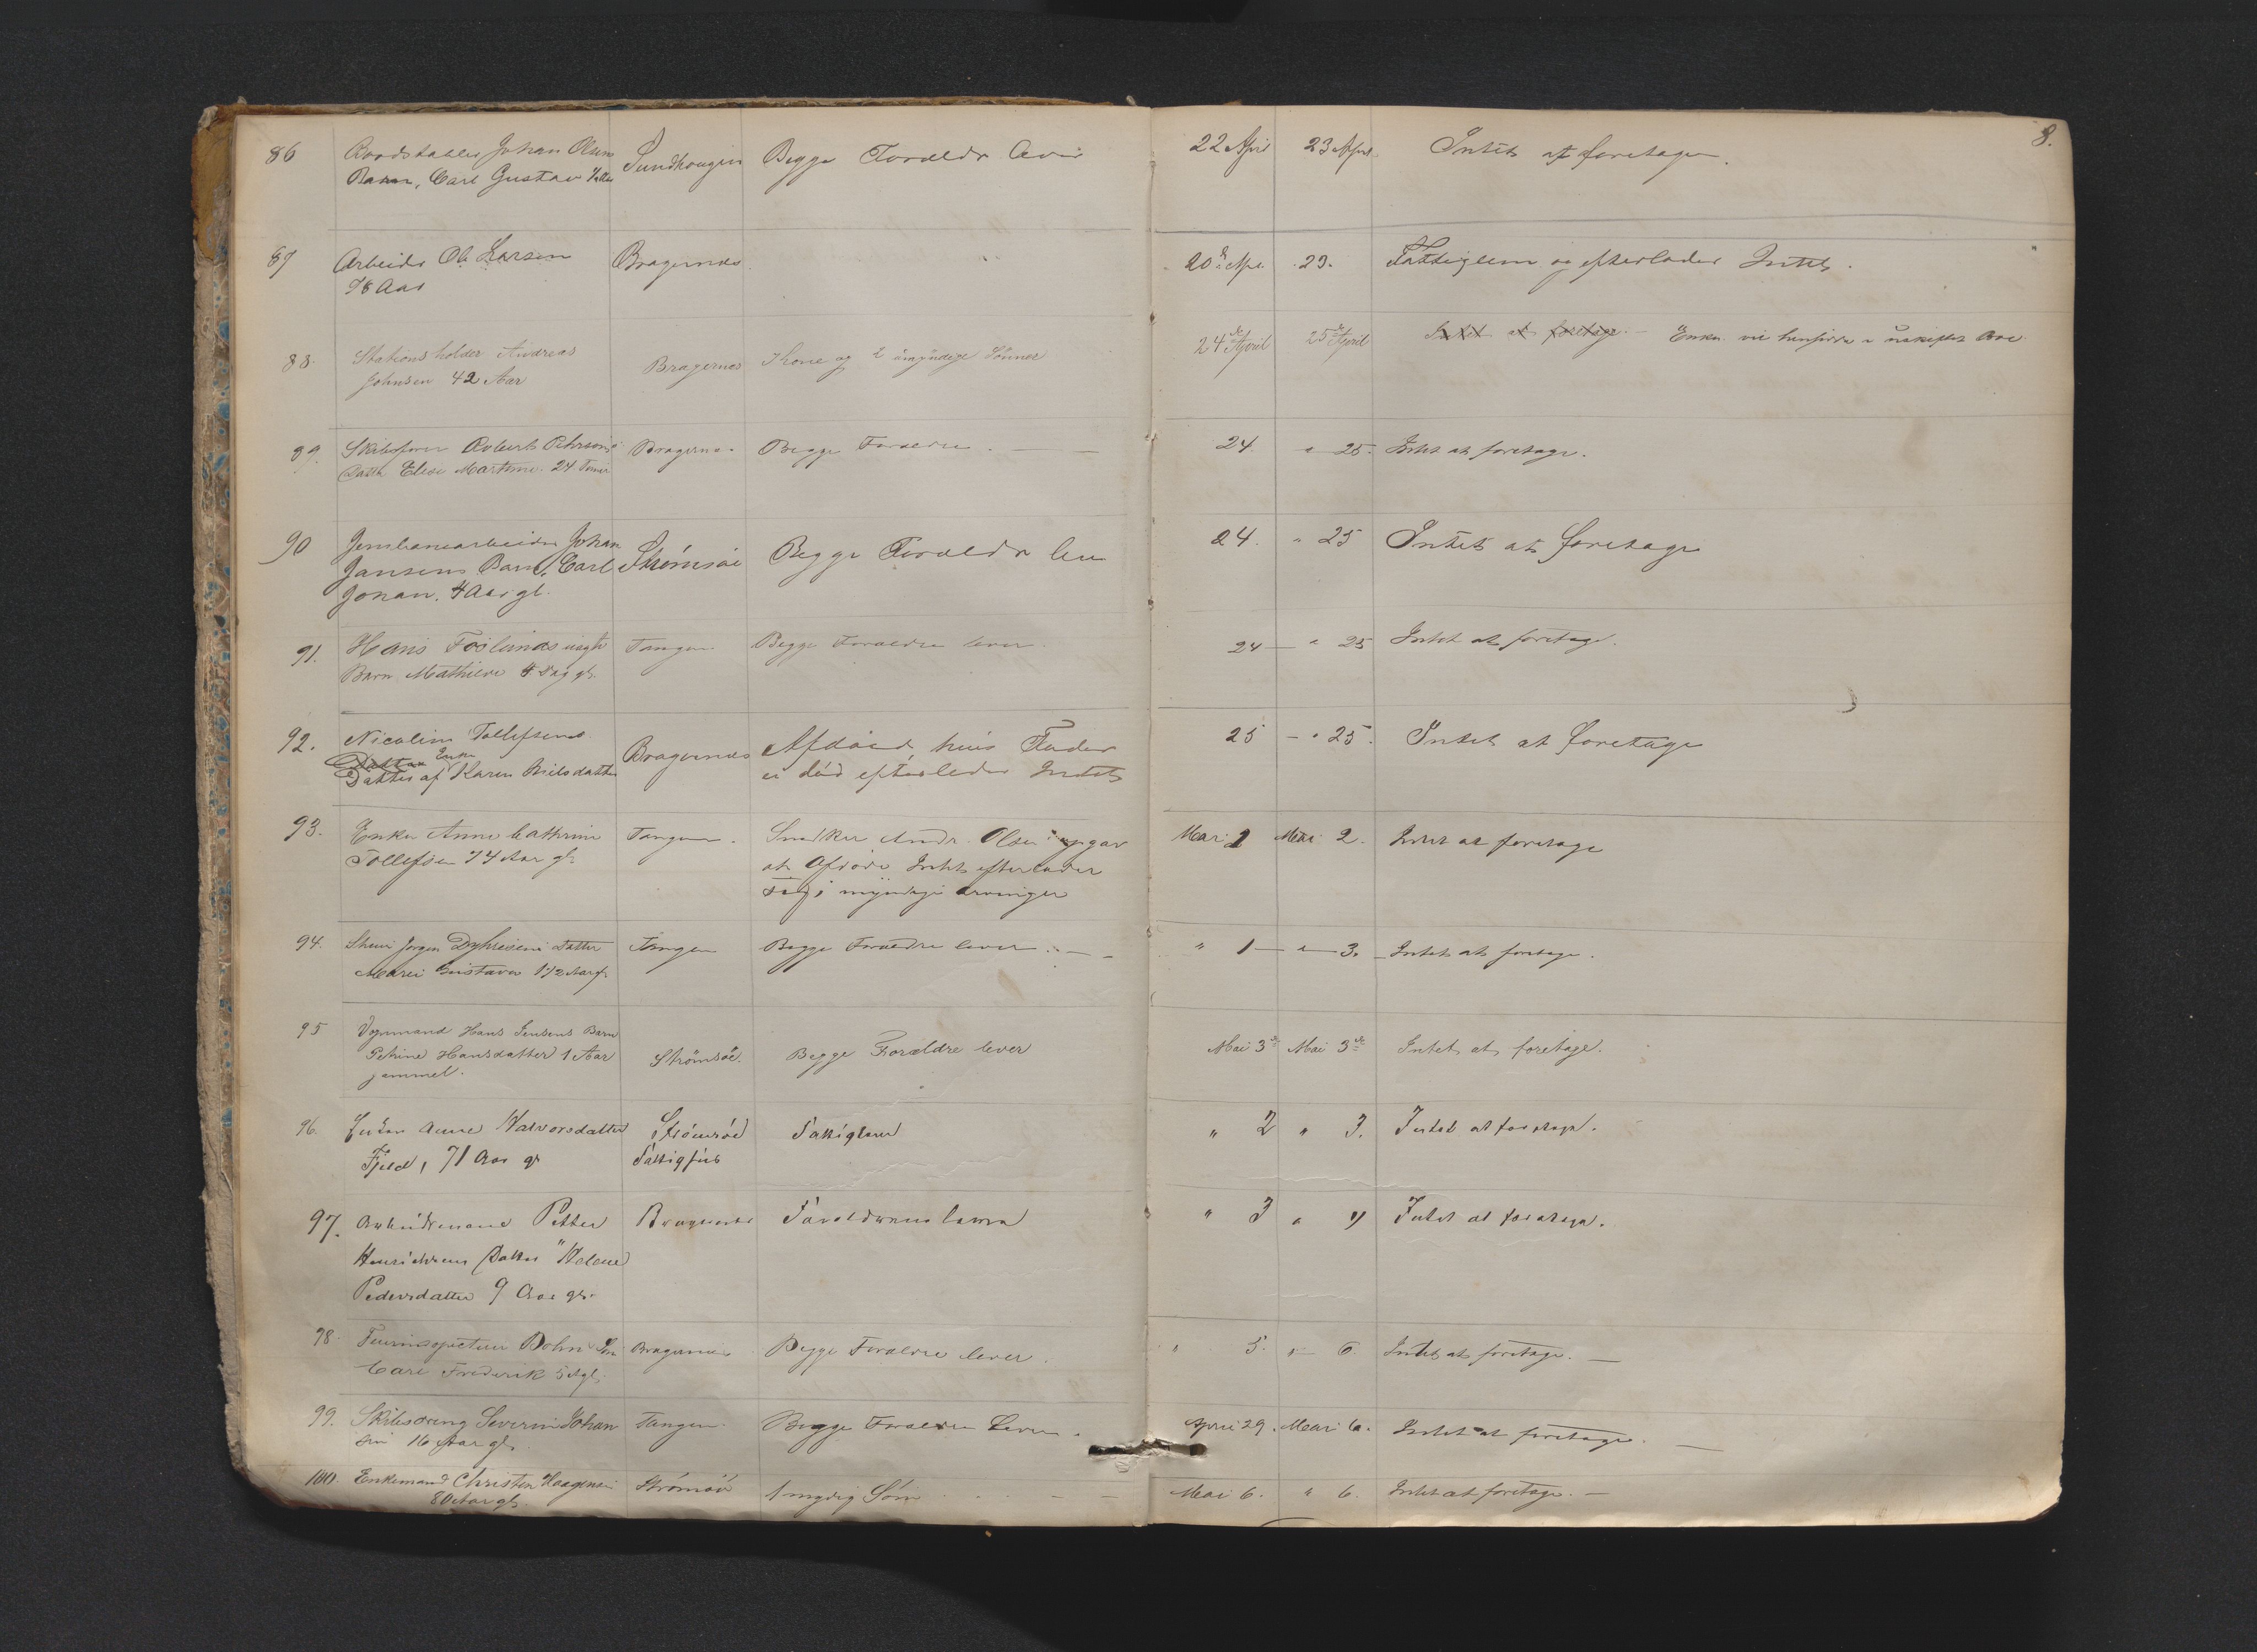 8.
86 Johan Olsens Sundhaugen Begge Foreldr lever 22 April 23 April Intet at foretage.
Barn, Carl Gustav
87 Arbeids Ole Larsen Bragernæs 20de Apr. 23. Fattiglem og efterlader Intet.
78 Aar
88. Stationsholder Andreas Bragernæs Kone og 2 umyndige Sönner 24de April 25de April Intet at foretage. — Enken vil hensidde i uskiftet Boe
Johnsen 42 Aar
89. Petersens Bragernæs Begge Forældre — — 24. " 25. Intet at foretage.
Datter Elise Martine. 24 Timer
90 Jernbanearbeider Johan Strömsöe Begge Foreldr lev 24. " 25 Intet at foretage
Jansens Barn, Carl
Johan. 4 Aar gl.
91. Hans Tangen Begge Forældre lever. 24 — " 25 Intet at foretage.
Barn Mathilde 4 Dag gl.
92. Nicoline Tollefsens Bragernæs Afdöde hvis Fader 25 — " 25. Intet at foretage
Enke
Datter af Karen Nielsdatter er död efterleder Intet
93. Enke Anne Cathrine Tangen. Snedker Andr. Olsen opgav Mai 1 Mai 2. Intet at foretage
Tollefsen 74 Aar gl. at Afdöde Intet efterlader
myndige arvinger
94. Jørgen datter Tangen Begge Forældre lever. — " 1 — " — 3. Intet at foretage.
Marie Gustava 1 1/2 Aar gl.
95 Vognmand Hans Jensens Barn Strömsöe. Begge Forældre lever Mai 3de Mai 3de Intet at foretage.
Petrine Hansdatter 1 Aar
gammel.
96. Enken Anne Halvorsdatter Strömsöe Fattiglem " 2 " 3. Intet at foretage.
Fjeld, 71 Aar gl Fattighus
97. Arbeidsmand Petter Bragernæs Forældrene leve " 3 " " Intet at foretage.
Henriksens Datter "Helene
Pedersdatter 9 Aar gl.
98. Dohn Sön Bragernæs Begge Forældre lever. " 5. " 6. Intet at foretage. —
Carl Frederik 5
99. Severin Johan Tangen Begge Forældre Lever. April 29. Mai 6. Intet at foretage. —
sen 16 Aar gl.
100. Enkemand Christen Haagensen Strömsöe 1 mydig Sön — — Mai 6. " 6. Intet at foretage. —
80 Aar gl.